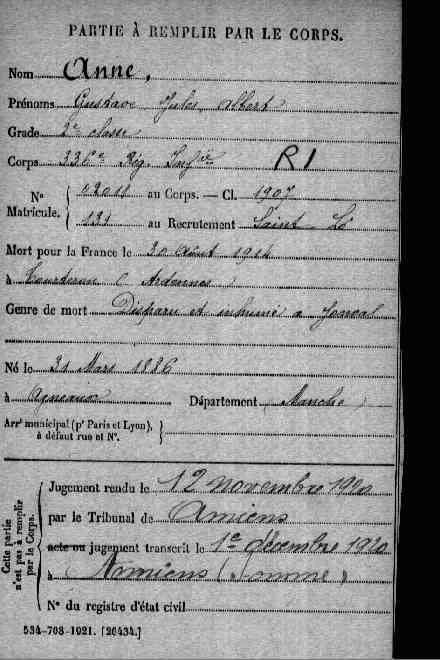 PARTIE À REMPLIR PAR LE CORPS.
Nom Anne,
Prénoms Gustave Jules Albert
Grade 2e classe
Corps 336e Rég. Infie R1
No Matricule. 02011 au Corps. — Cl. 1907
131 au Recrutement Saint Lô
Mort pour la France le 30 Août 1914
à (Ardennes)
Genre de mort Disparu et inhumé a
Né le 31 Mars 1886
à Agneaux Département Manche
Arrt municipal (pr Paris et Lyon), à défaut rue et No.
Cette partie n'est pas à remplir par le Corps.
Jugement rendu le 12 novembre 1920
par le Tribunal de Amiens
acte ou jugement transcrit le 1er décembre 1920
à Amiens (Somme)
No du registre d'état civil
534-708-1921. [26434.]